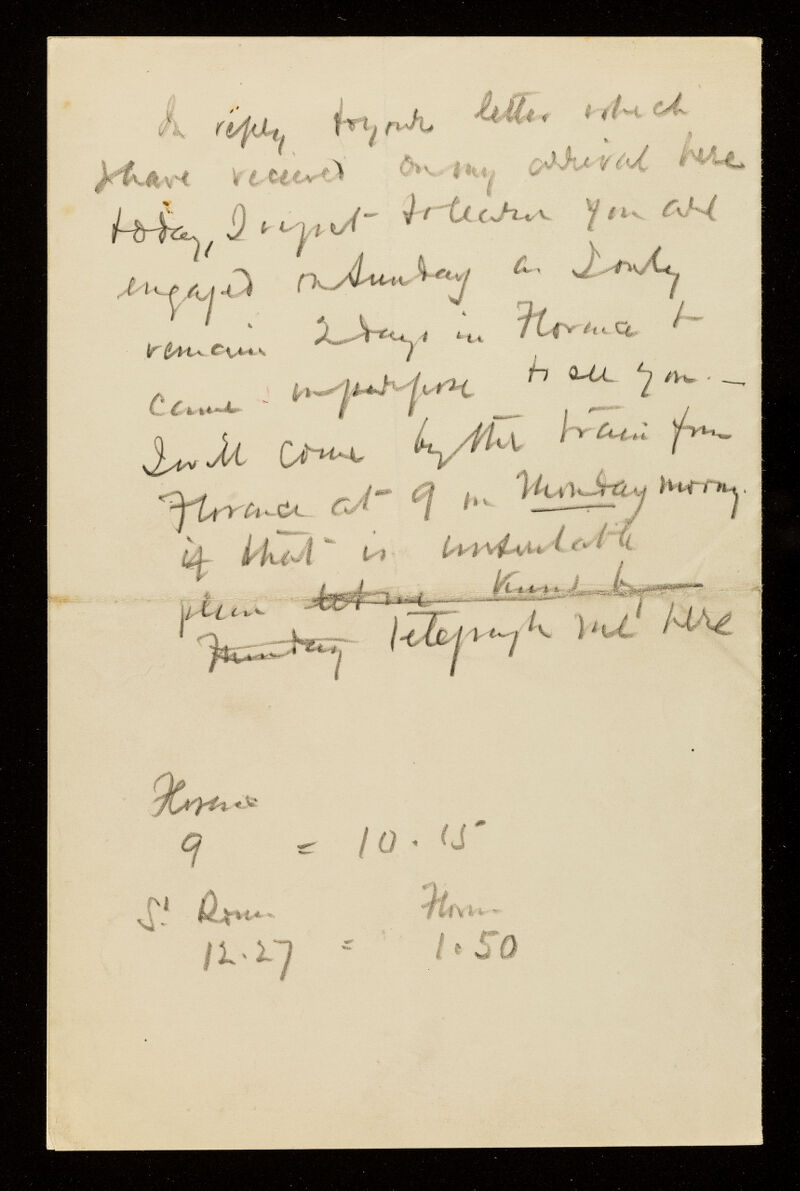 In reply to your letter which
I have received on my arrival here
today, I regret to learn you are
engaged on Sunday as I only
remain 2 days in Florence &
came on purpose to see you. —
I will come by the train from
Florence at 9 on Monday morng.
if that is unsuitable
please let me know by
Sunday telegraph me here
Florence
9 = 10.15
St Florn
12.27 = 1.50